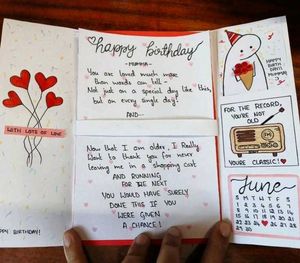 WITH LOTS OF LOVE
HAPPY BIRTHDAY!
happy birthday
- MUMMA -
You are loved much more
than words can tell -
Not just on a special day like this,
but on every single day!
AND--
Now that I am older, I Really
Want to thank you for never
leaving me in a shopping cart
AND RUNNING
FOR THE NEXT
YOU WOULD HAVE SURELY
DONE THIS IF YOU
WERE GIVEN
A CHANCE!
HAPPY
BIRTHDAY
MUMMA!
FOR THE RECORD,
YOU'RE NOT
OLD
YOU'RE CLASSIC!
June
S M T W T F S